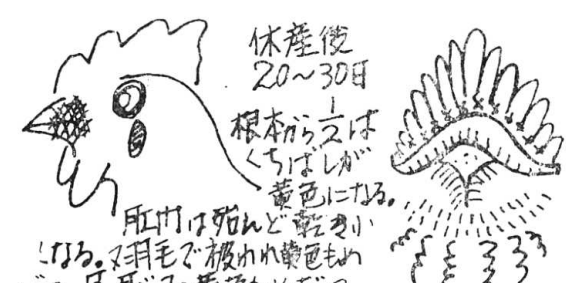 休産後
20〜30日
根本から1/2は
くちばしが
黄色になる。
肛門は殆んど乾き小
くなる。又羽毛で被われ黄色もめ